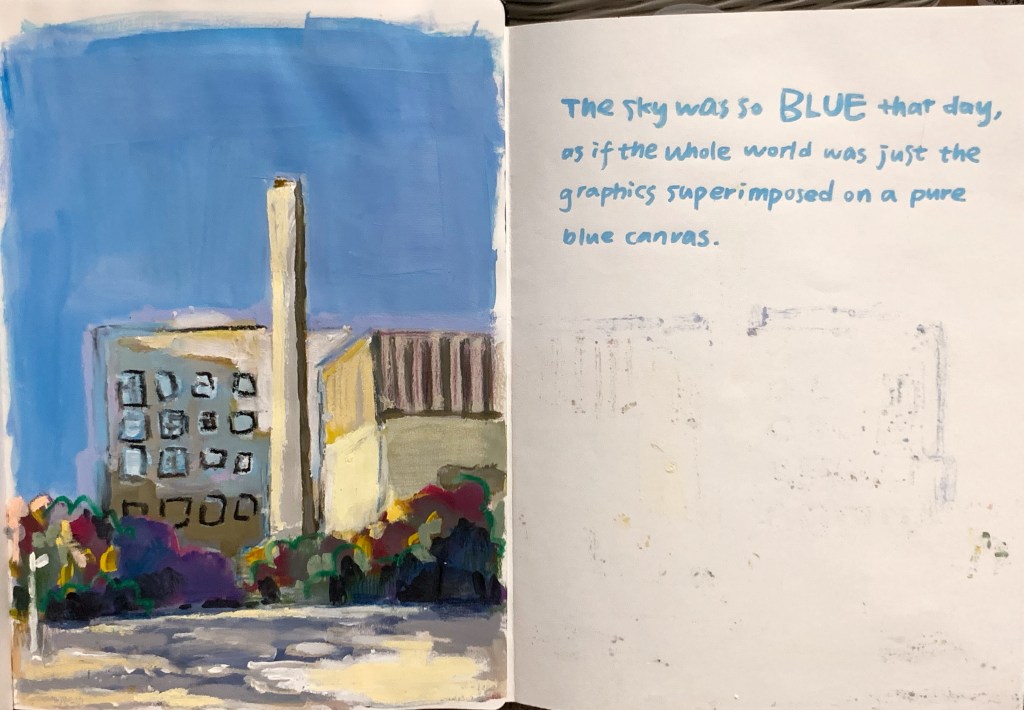 The sky was so BLUE that day,
as if the whole world was just the
graphics superimposed on a pure
blue canvas.